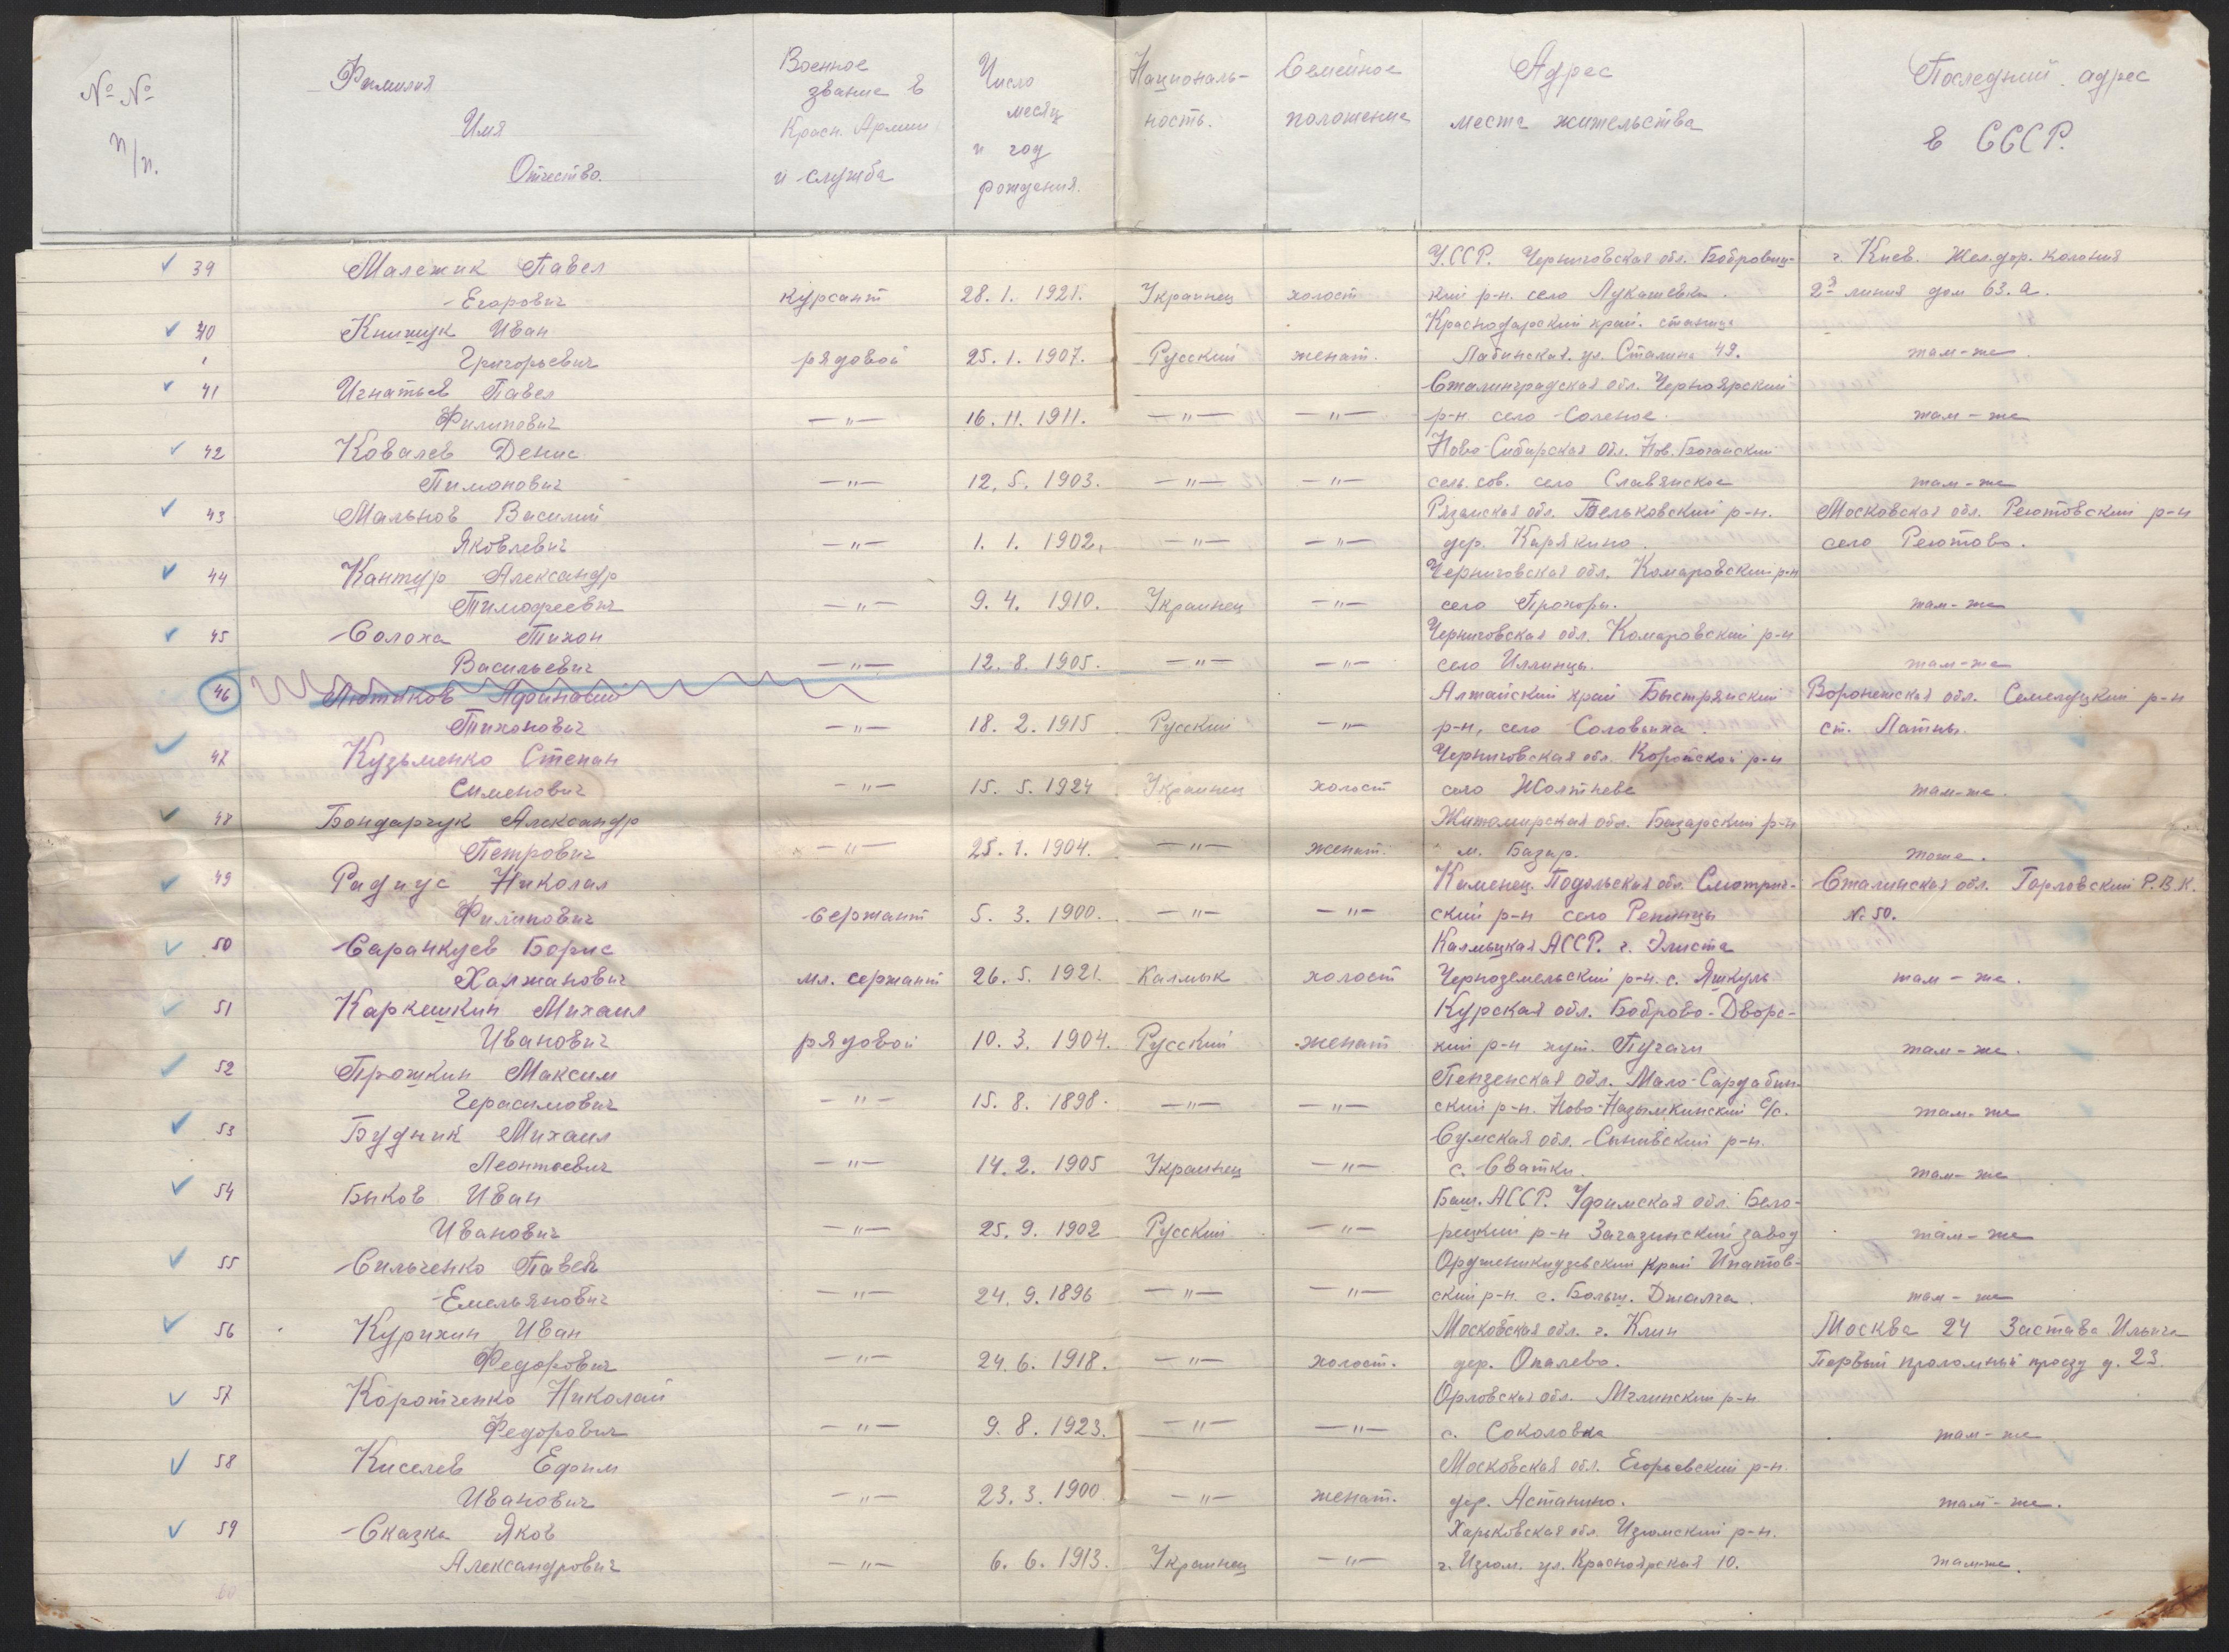 № № п/п. Фамилия Имя Отчество. Военное звание в Красн. Армии и служба Число месяц и год рождения. Националь-ность. Семейное положение Адрес места жительства Последний адрес в СССР.
39 Малежик Павел У.ССР. Черниговская обл. Бобровиц- г. Киев. Жел.дор. колония
Егорович курсант 28. 1. 1921. Украинец холост кий р-н. село Лукашевка. 2я линия дом 63. а.
40 Книжук Иван Краснодарский край. станица
Григорьевич рядовой 25. 1. 1907. Русский женат. Лабинская. ул. Сталина 49. там-же.
41 Игнатьев Павел Сталинградская обл. Черноярский
Филипович —"— 16. 11. 1911. —"— —"— р-н село Соленое. там-же
42 Ковалев Денис Ново-Сибирская обл. Нов.
Пимонович —"— 12. 5. 1903. —"— —"— сель. сов. село Славянское там-же
43 Мальнов Василий Рязанская обл. Бельковский р-н. Московская обл. Реютовский р-н
Яковлевич —"— 1. 1. 1902. —"— —"— дер. Карякино. село Реютово.
44 Кантур Александр Черниговская обл. Комаровский р-н
Тимофеевич —"— 9. 4. 1910. Украинец —"— село Прохоры. там-же
45 Солоха Тихон Черниговская обл. Комаровский р-н
Васильевич —"— 12. 8. 1905. —"— —"— село Иллинцы. там-же
46 Лютиков Афанасий Алтайский край Быстрянский Воронежская обл. Семелуцкий р-н
Тихонович —"— 18. 2. 1915 Русский —"— р-н, село Соловьиха. ст. Латны.
47 Кузьменко Степан Черниговская обл. Коропской р-н
Сименович —"— 15. 5. 1924 Украинец холост село Жолтнева там-же.
48 Бондарчук Александр Житомирская обл. Базарский р-н
Петрович —"— 25. 1. 1904. —"— женат. м. Базар. тоже.
49 Радиус Николай Каменец. Подольская обл. Смотрич- Сталинская обл. Горловский Р.В.К.
Филипович Сержант 5. 3. 1900. —"— —"— ский р-н село Репинцы № 50.
50 Саранкуев Борис Калмыцкая АССР. г. Элиста
Халжанович мл. сержант 26. 5. 1921. Калмык холост Черноземельский р-н. с. Яшкуль там-же.
51 Каркешкин Михаил Курская обл. Боброво-Дворс-
Иванович рядовой 10. 3. 1904. Русский женат кий р-н хут. Пугачи там-же.
52 Прошкин Максим Пензенская обл. Мало-Сардабин-
Герасимович —"— 15. 8. 1898. —"— —"— ский р-н. Ново-Назымкинский с/с. там-же
53 Будник Михаил Сумская обл. Синивский р-н.
Леонтьевич —"— 14. 2. 1905 Украинец —"— с. Сватки. там-же
54 Быков Иван Баш. АССР. Уфимская обл. Бело-
Иванович —"— 25. 9. 1902 Русский —"— рецкий р-н Загазинский завод там-же
55 Сильченко Павел Орджоникидзевский край Ипатов-
Емельянович —"— 24. 9. 1896 —"— —"— ский р-н. с. Больш. Джалга. там-же
56 Курихин Иван Московская обл. г. Клин Москва 24 Застава Ильича
Федорович —"— 24. 6. 1918. —"— холост. дер. Опалево. Первый проломный проезд д. 23.
57 Коротченко Николай Орловская обл. Мглинский р-н
Федорович —"— 9. 8. 1923. —"— —"— с. Соколовка там-же
58 Киселев Ефим Московская обл. Егорьевский р-н.
Иванович —"— 23. 3. 1900 —"— женат. дер. Астанино. там-же.
59 Сказка Яков Харьковская обл. Изюмский р-н.
Александрович —"— 6. 6. 1913. Украинец —"— г. Изюм. ул. Красноярская 10. там-же.
60